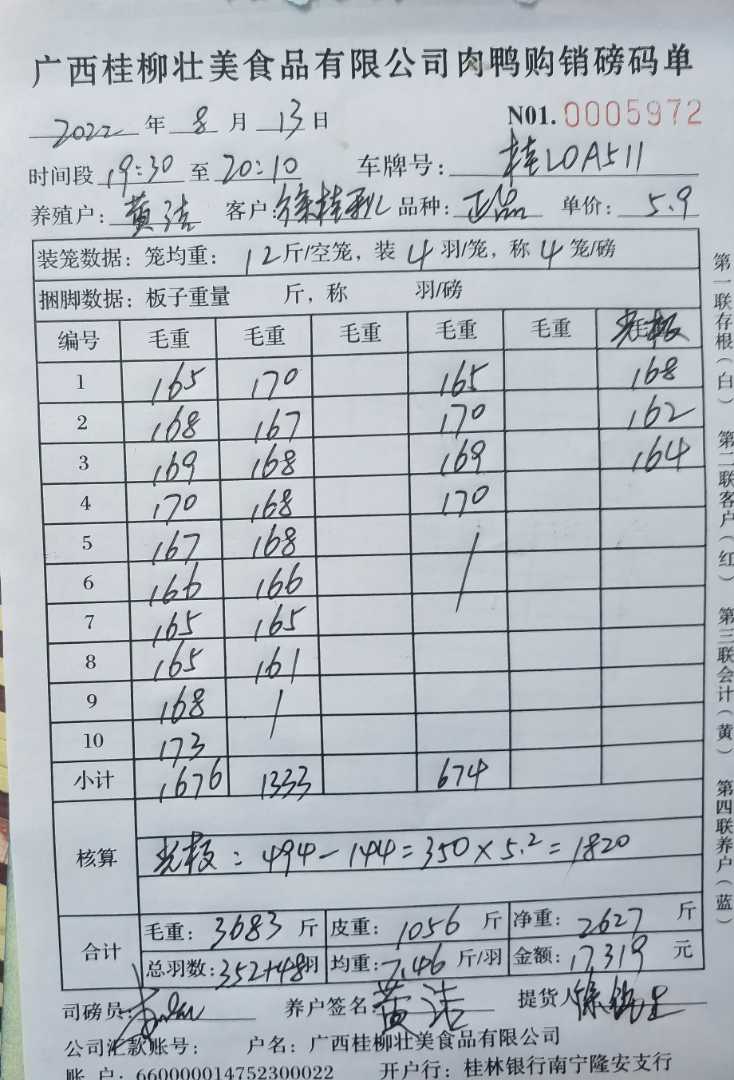 广西桂柳壮美食品有限公司肉鸭购销磅码单
2022 年 8 月 13 日 N01. 0005972
时间段 19:30 至 20:10 车牌号: 桂L0A511
养殖户: 黄洁 客户: 徐桂 品种: 正品 单价: 5.9
装笼数据: 笼均重: 12 斤/空笼, 装 4 羽/笼, 称 4 笼/磅
捆脚数据: 板子重量 斤, 称 羽/磅
编号 毛重 毛重 毛重 毛重 毛重 光板
1 165 170 165 168
2 168 167 170 162
3 169 168 169 164
4 170 168 170
5 167 168 /
6 166 166
7 165 165
8 165 161
9 168 /
10 173
小计 1676 1333 674
核算 光板: 494-144=350×5.2=1820
合计 毛重: 3683 斤 皮重: 1056 斤 净重: 2627 斤
总羽数: 352+48羽 均重: 7.46 斤/羽 金额: 17319 元
司磅员: 养户签名: 黄洁 提货人
公司汇款账号: 户名: 广西桂柳壮美食品有限公司
账 户: 660000014752300022 开户行: 桂林银行南宁隆安支行
第一联存根(白) 第二联客户(红) 第三联会计(黄) 第四联养户(蓝)